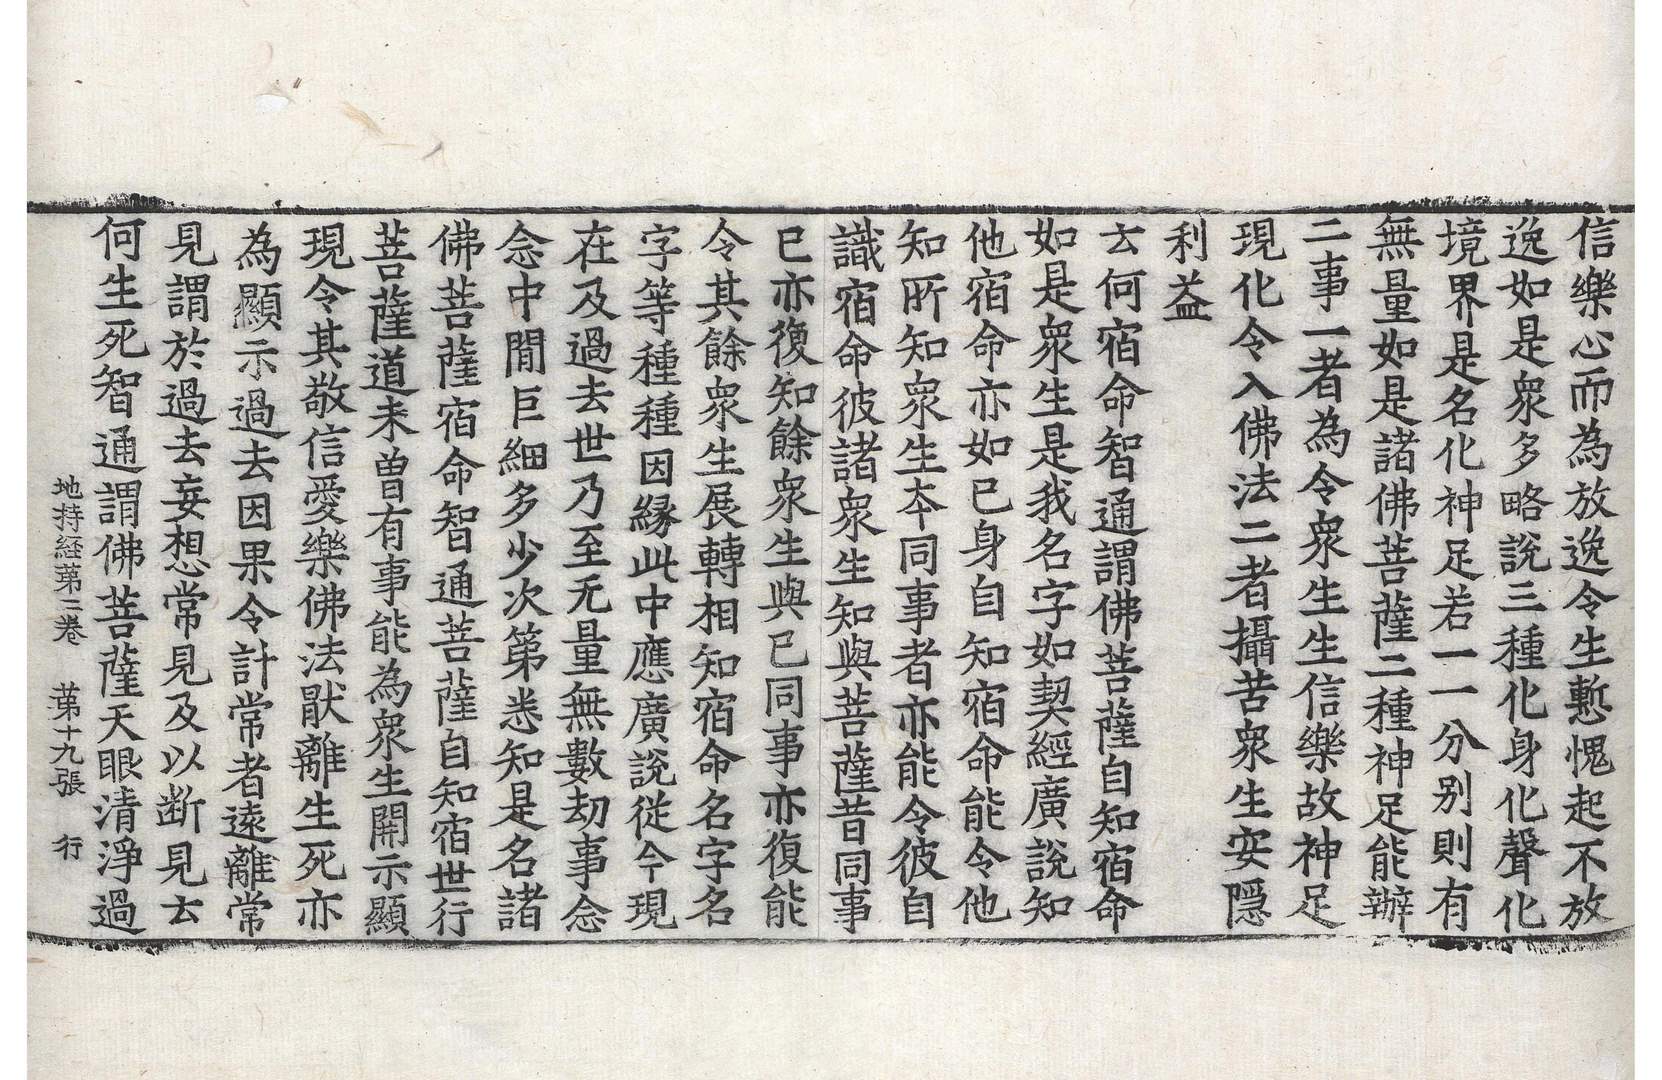 信樂心而為放逸令生慙愧起不放
逸如是衆多略說三種化身化聲化
境界是名化神足若一一分别則有
無量如是諸佛菩薩二種神足能辦
二事一者為令衆生生信樂故神足
現化令入佛法二者攝苦衆生安隱
利益
云何宿命智通謂佛菩薩自知宿命
如是衆生是我名字如契經廣說知
他宿命亦如已身自知宿命能令他
知所知衆生夲同事者亦能令彼自
識宿命彼諸衆生知與菩薩昔同事
已亦復知餘衆生與已同事亦復能
令其餘衆生展轉相知宿命名字名
字等種種因緣此中應廣說從今現
在及過去世乃至无量無數劫事念
念中閒巨細多少次第悉知是名諸
佛菩薩宿命智通菩薩自知宿世行
菩薩道未曾有事能為衆生開示顯
現令其敬信愛樂佛法猒離生死亦
為顯示過去因果令計常者遠離常
見謂於過去妄想常見及以断見云
何生死智通謂佛菩薩天眼清淨過
地持経苐二卷　苐十九張　行